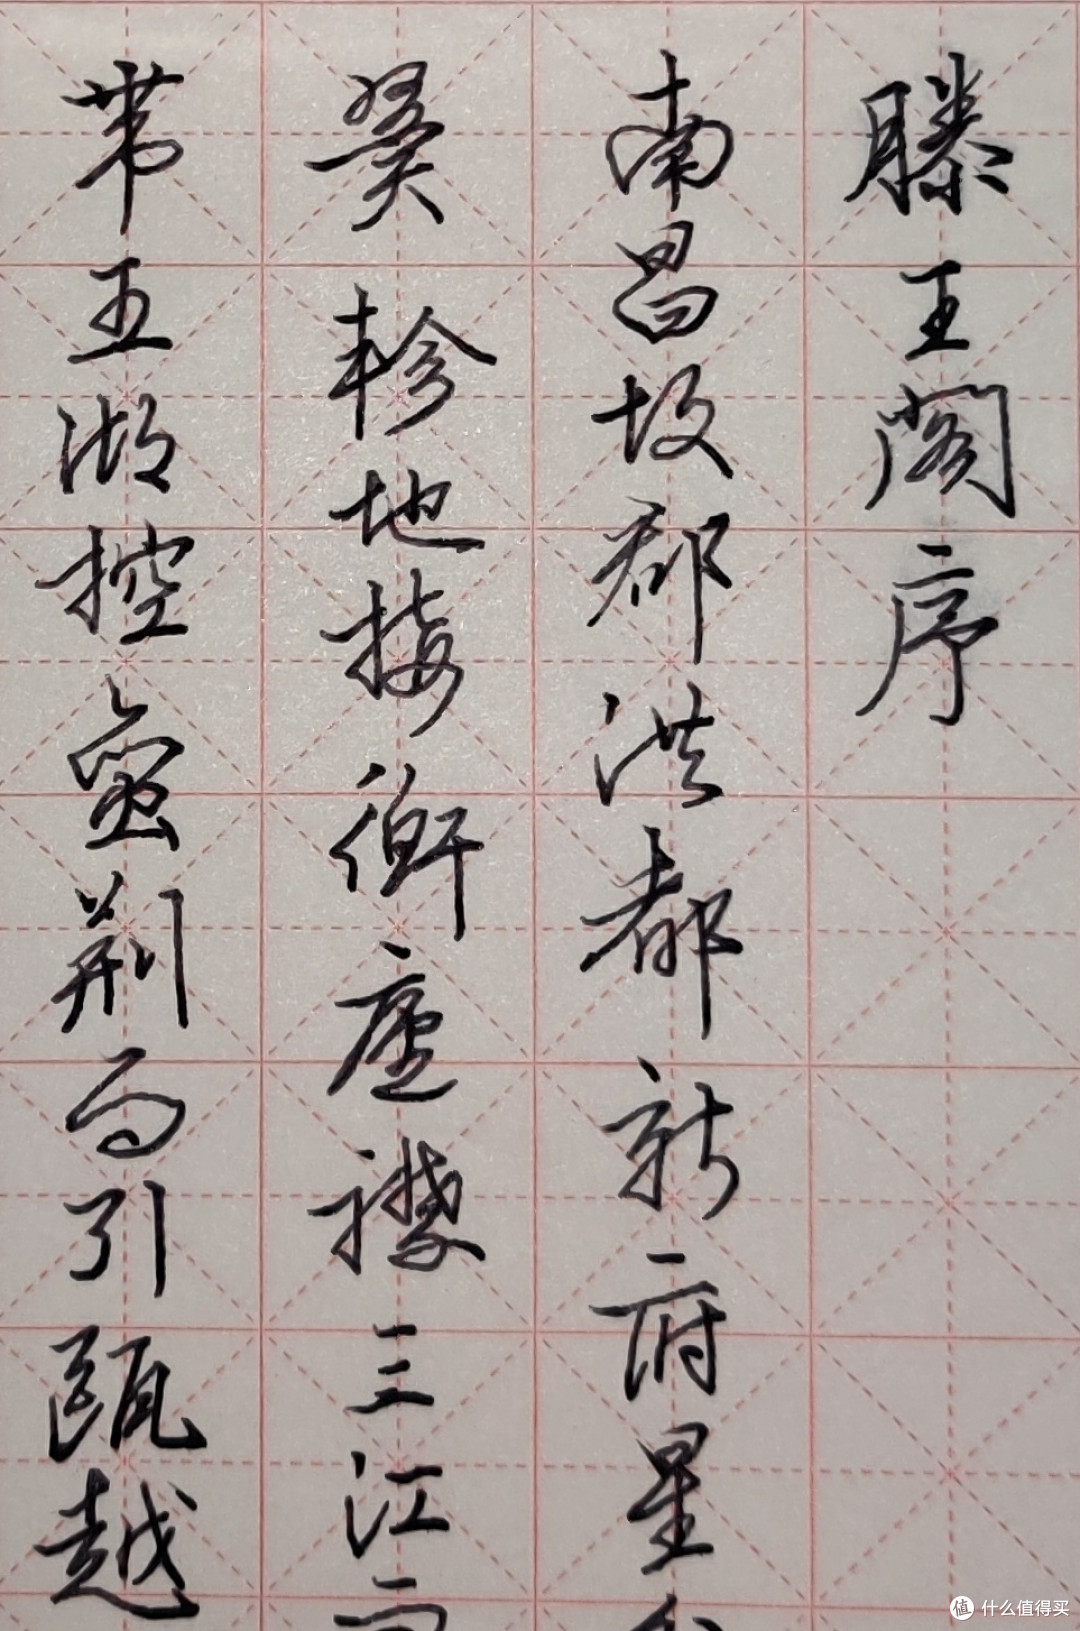 滕王阁序
南昌故郡洪都新府星分
翼轸地接衡庐襟三江而
带五湖控蛮荆而引瓯越
值 什么值得买